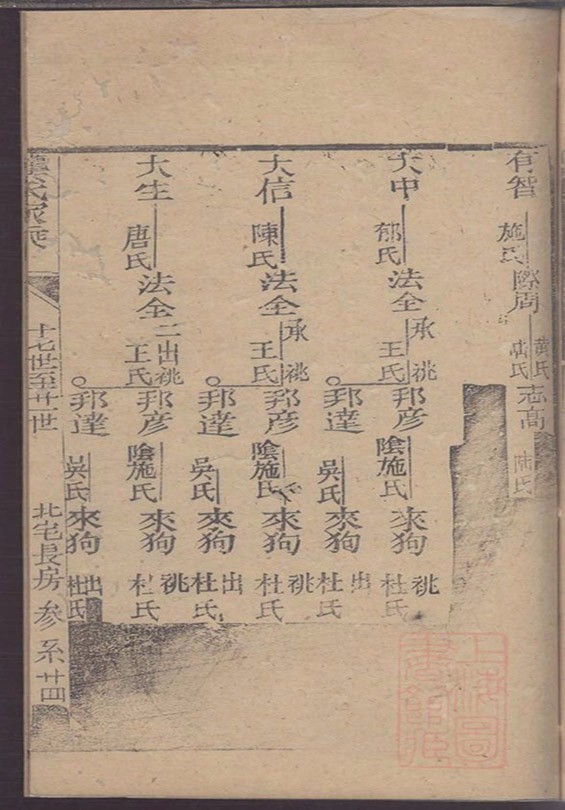 有智
施氏
際周
黄氏
志高
陸氏
大中
郁氏
法全
承祧
王氏
邦彦
陰施氏
來狗
祧
杜氏
邦達
吳氏
來狗
出
杜氏
大信
陳氏
法全
承祧
王氏
邦彦
陰施氏
來狗
祧
杜氏
邦達
吳氏
來狗
出
杜氏
大生
唐氏
法全
二出祧
王氏
邦彦
陰施氏
來狗
祧
杜氏
邦達
吳氏
來狗
出
杜氏
氏家乘
十七世至廿一世
北宅長房
參系廿四
上海圖書館藏